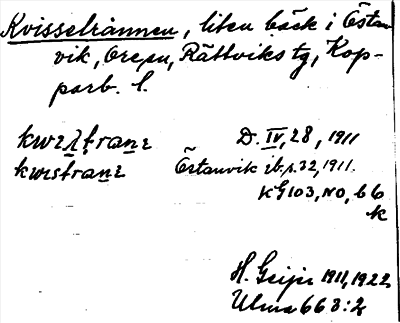 Kvisselrännen, liten bäck i Östan-
vik, Ore sn, Rättviks tg, Kop-
parb. l.
D. IV, 28, 1911
Östanvik ib. s. 32, 1911.
KG 103, NO, 66
k
H. Geijer 1911, 1922
Ulma 66 3:2